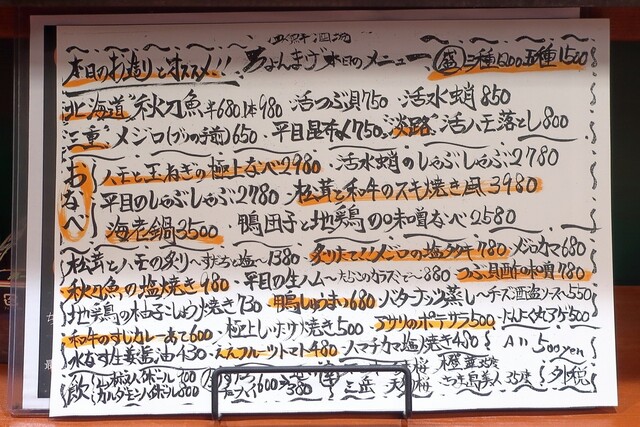 ちょんまげ 本日のメニュー
本日のお造りとオススメ!! 盛 三種1200 五種1500
北海道 秋刀魚 半680 1本980 ・活つぶ貝750 ・活水蛸850
三重 メジロ(ブリの手前)650 ・平目昆布〆750 淡路 活ハモ落とし800
おなべ
ハモと玉ねぎの極上なべ2980 ・活水蛸のしゃぶしゃぶ2780
平目のしゃぶしゃぶ2780 ・松茸と和牛のスキ焼き風3980
海老鍋3500 ・鴨団子と地鶏の味噌なべ2580
松茸とハモの炙り〜すだちと塩〜1380 メジロの塩タタキ780 ・メジロカマ680
秋刀魚の塩焼き980 ・平目の生ハム 880 つぶ貝 780
地鶏の柚子こしょう焼き730 鴨しゅうまい680 バターナッツ蒸し〜チーズ酒盗ソース〜550
和牛のすじカレーあて600 ・極上しいたけ焼き500 アサリのポテサラ500
水なす生姜醤油430 ・ フルーツトマト480 ハマチカマ塩焼き480 All 500yen
飲 800 カルダモンハイボール800 600 380 三岳 外税